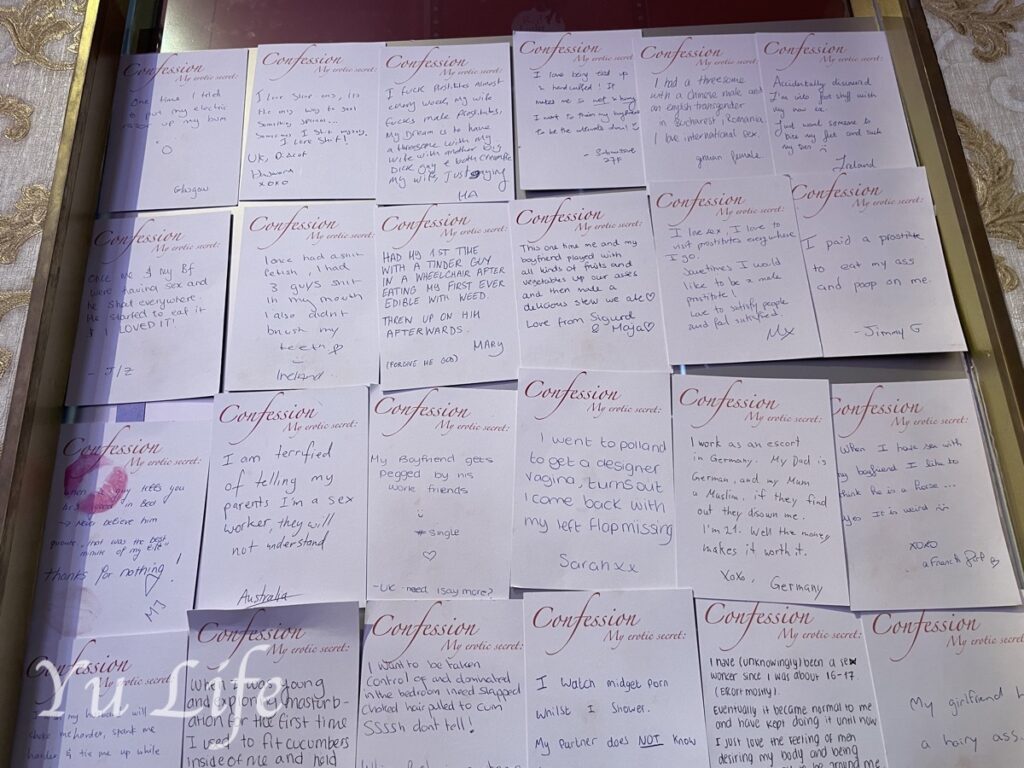 Confession
My erotic secret:
One time I tried
to put my electric
razor up my bum
Glasgow
Confession
My erotic secret:
UK,
xoxo
Confession
My erotic secret:
I fuck prostitutes almost
every week, my wife
fucks male prostitutes,
My dream is to have
a threesome with my
wife with another
My wife, Just
HA
Confession
My erotic secret:
I love being tied up
& handcuffed! It
makes me so
I want to
to be the ultimate
- Submissive
27F
Confession
My erotic secret:
I had a threesome
with a Chinese male and
an english transgender
in Bucharest Romania
I love international sex.
german female
Confession
My erotic secret:
Accidentally discovered
I'm into feet stuff with
my now ex.
Just want someone to
my feet and suck
my toes
Ireland
Confession
My erotic secret:
Once me & my Bf
were having sex and
he shat everywhere.
He started to eat it
& I LOVED IT!
- J/Z
Confession
My erotic secret:
I once had a shit
fetish, I had
3 guys shit
in my mouth
I also didnt
brush my
teeth
Ireland
Confession
My erotic secret:
HAD MY 1ST TIME
WITH A TINDER GUY
IN A WHEELCHAIR AFTER
EATING MY FIRST EVER
EDIBLE WITH WEED.
THREW UP ON HIM
AFTERWARDS.
MARY
(FORGIVE ME GOD)
Confession
My erotic secret:
This one time me and my
boyfriend played with
all kinds of fruits and
vegetable up our asses
and then made a
delicious stew we ate♡
Love from Sigurd
& Maja♡
Confession
My erotic secret:
I love sex, I love to
visit prostitutes everywhere
I go.
Sometimes I would
like to be a male
prostitute!
Love to satisfy people
and feel satisfied.
MX
Confession
My erotic secret:
I paid a prostitute
to eat my ass
and poop on me.
- Jimmy G
Confession
My erotic secret:
when a guy tells you
in Bed
→ Never believe him
quote, "that was the best
minute of my life"
thanks for nothing!
MJ
Confession
My erotic secret:
I am terrified
of telling my
parents I'm a sex
worker, they will
not understand
Australia
Confession
My erotic secret:
My Boyfriend gets
pegged by his
work friends
#single
♡
- UK need I say more?
Confession
My erotic secret:
I went to polland
to get a designer
vagina, turns out
I came back with
my left flop missing
Sarah xx
Confession
My erotic secret:
I work as an escort
in Germany. My Dad is
German, and my Mum
a Muslim. if they find
out they disown me.
I'm 21. Well the money
makes it worth it.
XoXo, Germany
Confession
My erotic secret:
When I have sex with
my boyfriend I like to
think he is a horse...
yes It is weird
xoxo
Confession
My erotic secret:
will
choke me harder, spank me
harder & tie me up while
Confession
My erotic secret:
Confession
My erotic secret:
I want to be taken
control of and dominated
in the bedroom I need slapped
choked hair pulled to cum
SSSSh dont tell!
Confession
My erotic secret:
I watch midget porn
whilst I shower.
My partner does NOT know
Confession
My erotic secret:
Confession
My erotic secret:
My girlfriend h
a hairy ass.
Yu Life